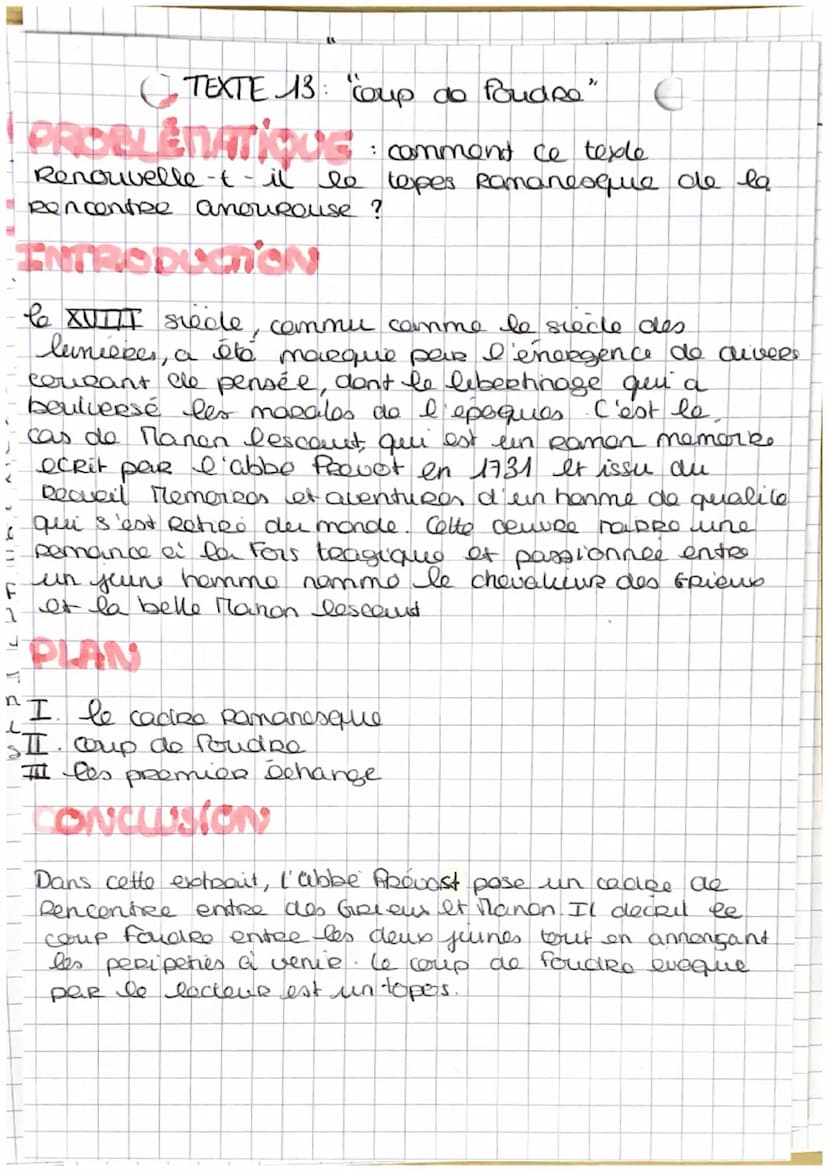 TEXTE 13: "coup de foudre"
PROBLÉMATIQUE : comment ce texte
Renouvelle-t-il le topos Romanesque de la
Rencontre amoureuse ?
INTRODUCTION
le XVIII siècle, connu comme le siècle des
lumières, a été marqué par l'émergence de divers
courant de pensée, dont le libertinage qui a
boulversé les morales de l'époques. C'est le
cas de Manon lescaut, qui est un Roman memoire
ecrit par l'abbé Prevot en 1731 et issu du
Recueil Memoires et aventures d'un homme de qualité
qui s'est Retiré du monde. Cette oeuvre une
Romance à la fois tragique et passionnée entre
un jeune homme nommé le chevalieur des Grieux
et la belle Manon lescaut
PLAN
I. le cadre Romanesque
II. coup de foudre
III les premier échange
CONCLUSION
Dans cette extrait, l'abbé Prévost pose un cadre de
Rencontre entre des Grieux et Manon. Il decrit le
coup foudre entre les deux jeunes tout en annonçant
les peripeties à venir. le coup de foudre evoque
par le lecteur est un topos.